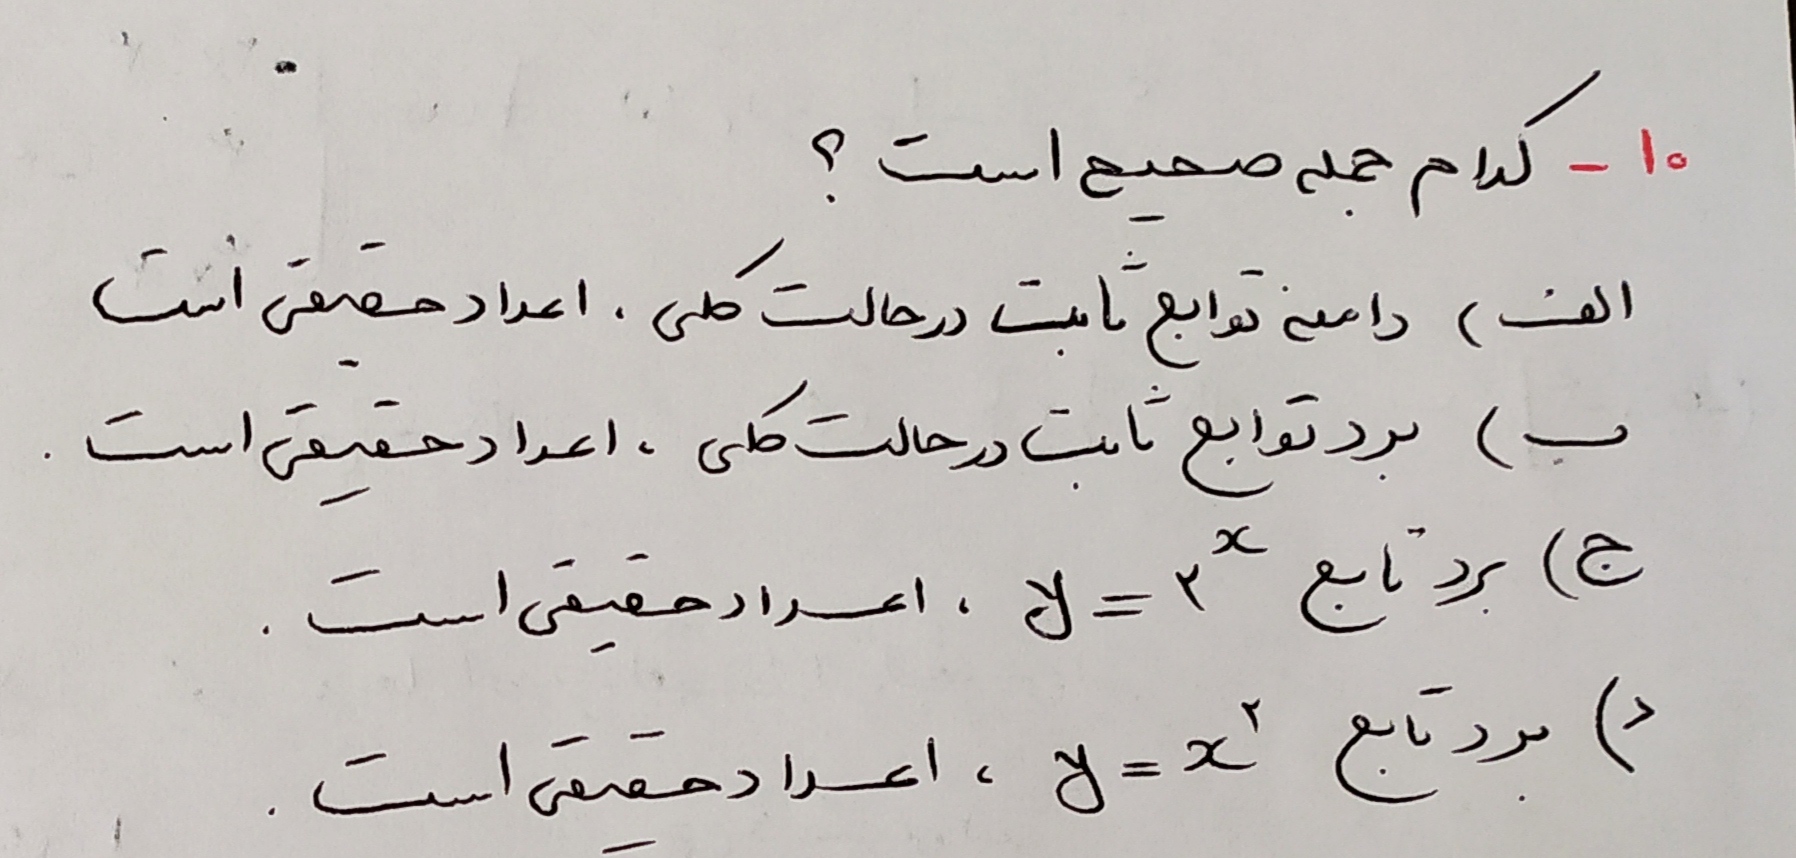 ۱۰ - کدام جمله صحیح است ؟
الف) دامنه توابع ثابت در حالت کلی ، اعداد حقیقی است
ب) برد توابع ثابت در حالت کلی ، اعداد حقیقی است .
ج) برد تابع y = ۲^x ، اعداد حقیقی است .
د) برد تابع y = x^۲ ، اعداد حقیقی است .